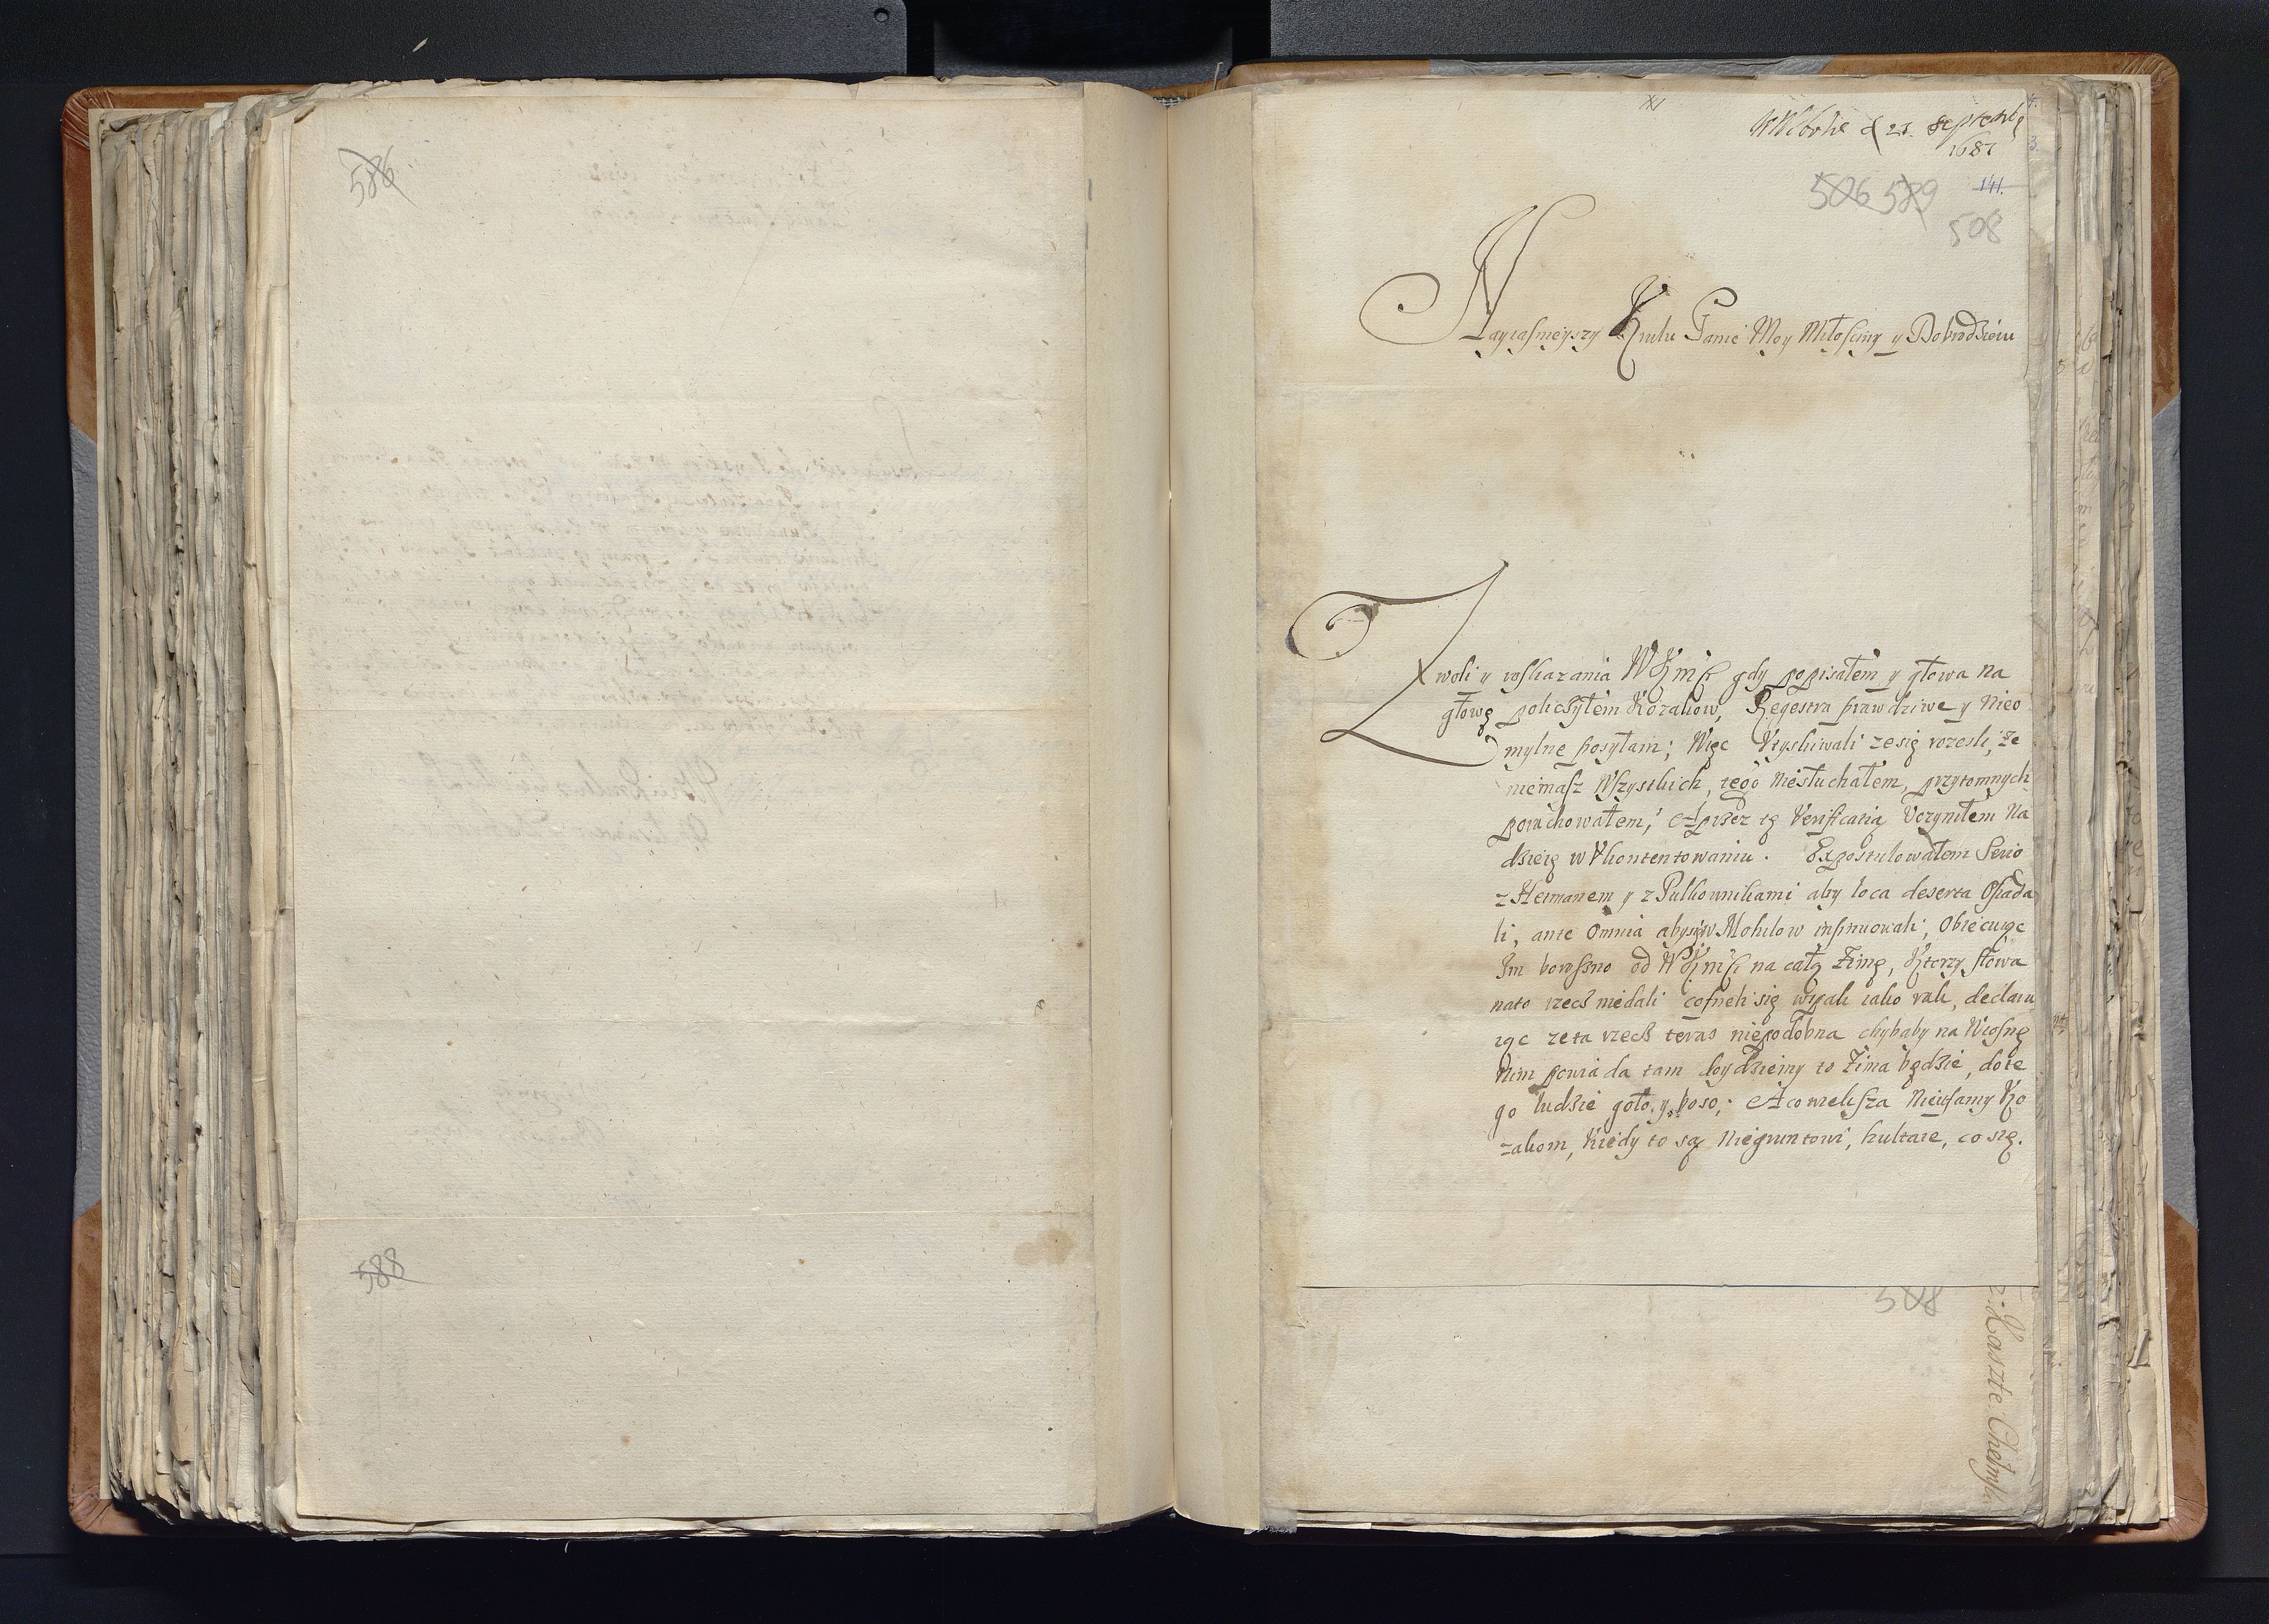 586
588
d 21. Septembr
1687
141.
506 589
508
Nayiasnieyszy Krulu Panie Moy Miłosciwy y Dobrodzieiu
Z woli y roskazania WKmsc gdy popisałem y głowa na
głowę policzyłem Kozakow, Regestra prawdziwe y nieo
mylne posyłam; Więc Vtyskiwali ze się rozeszli, ze
niemasz Wszystkich, tego niesłuchałem, przytomnych
porachowałem; A przez tę Verificatią Vczyniłem na
dzieię w Vkontentowaniu. Expostulowałem Serio
z Hetmanem y z Pułkownikami aby loca deserta Osiada
li, ante Omnia aby się w Mohilow insinuowali, Obiecuiąc
Im boroszno od WKmsc na całą Zimę, Ktorzy słowa
nato rzecz niedali cofneli się wspak iako rak, declaru
iąc ze ta rzecz teras niepodobna chybaby na Wiosnę
Nim powiada tam doydziemy to Zima będzie, do te
go ludzie goło, y boso; A co wieksza nieufamy Ko
zakom, Kiedy to są niegruntowi, hultaie, co się.
508
Kasztel: Chełmski